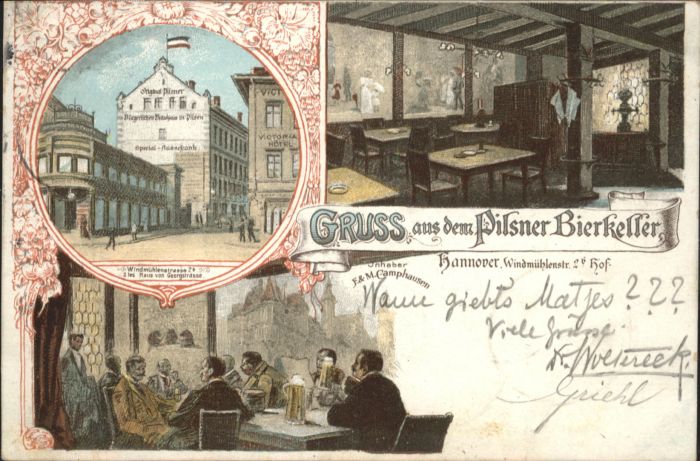 Original Pilsner
Bürgerliches Bräuhaus in Pilsen
Special-Ausschank
VICT
VICTORIA
HÔTEL
Windmühlenstrasse 2b
2tes Haus von Georgstrasse.
GRUSS aus dem Pilsner Bierkeller,
Inhaber
F. & M. Camphausen
Hannover, Windmühlenstr. 2b Hof.
Wann giebts Matjes ???
Viele Grüsse
Griehl